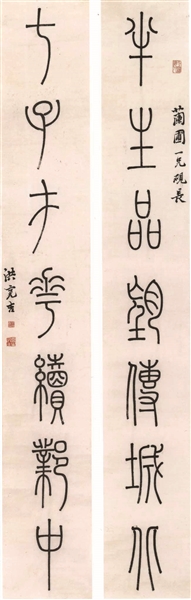 蘭圃一兄硯長
半生品望傳城北
七子才華續鄴中
洪亮吉